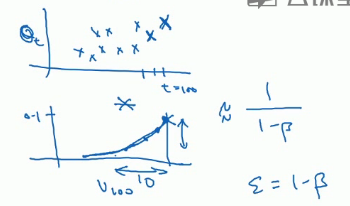 θt
t=100
0.1
V100
10
≈ 1/(1-β)
ε = 1-β